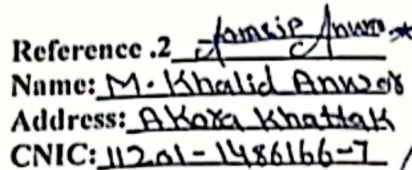 Reference .2
Name: M. Khalid Anwar
Address: Akora Khattak
CNIC: 11201-1486166-7